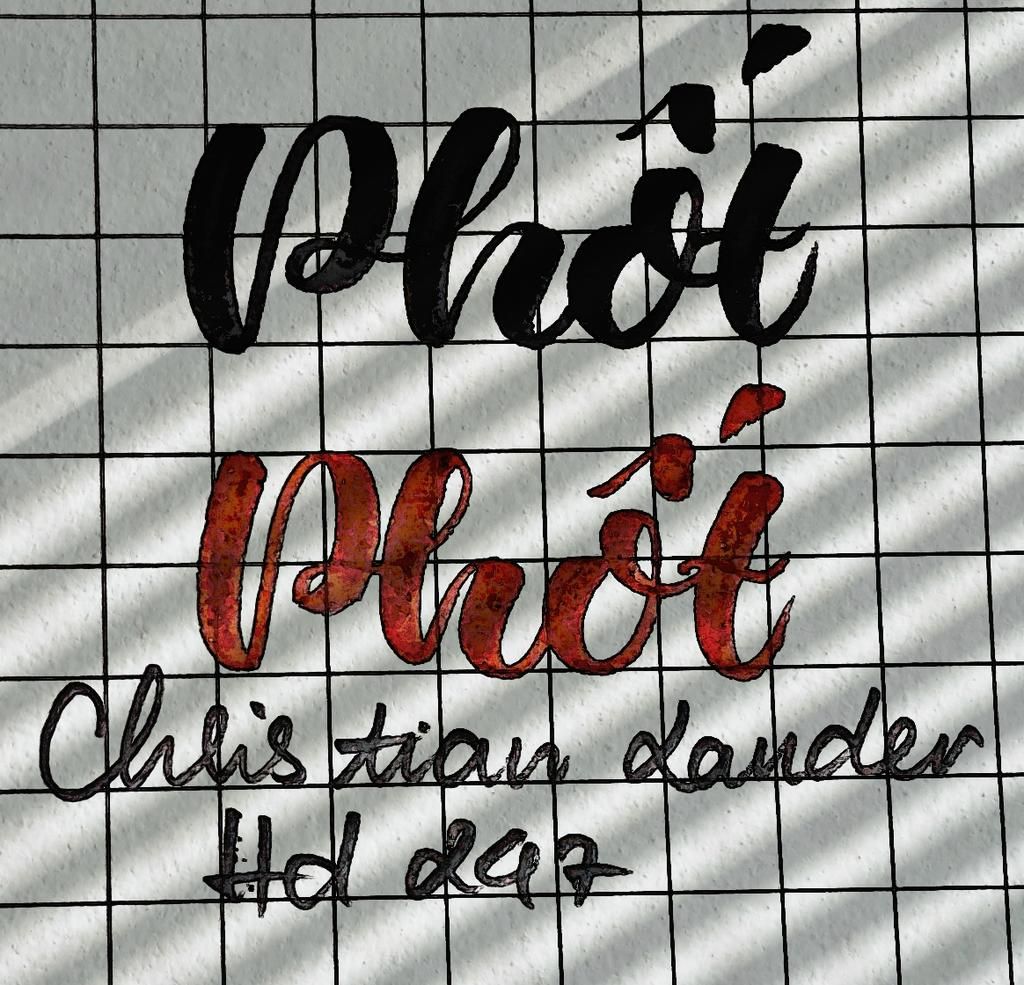 Phốt
Phốt
Christian Lander
Hd 247